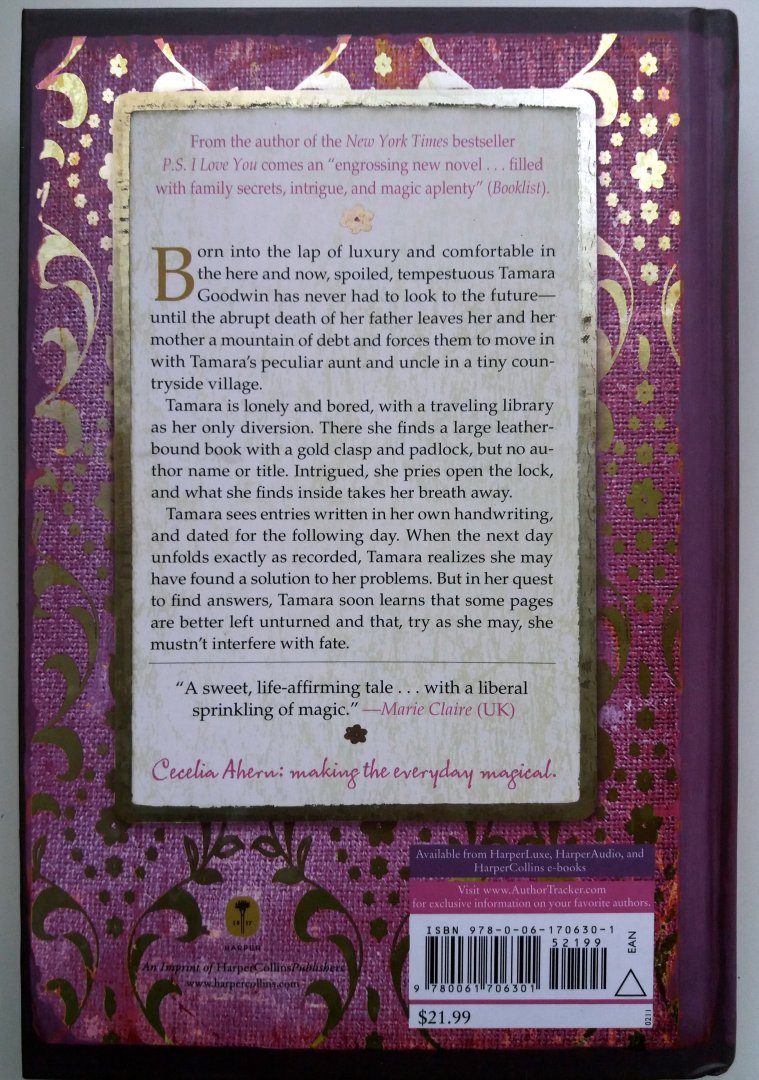 From the author of the New York Times bestseller
P.S. I Love You comes an “engrossing new novel . . . filled
with family secrets, intrigue, and magic aplenty” (Booklist).
Born into the lap of luxury and comfortable in
the here and now, spoiled, tempestuous Tamara
Goodwin has never had to look to the future—
until the abrupt death of her father leaves her and her
mother a mountain of debt and forces them to move in
with Tamara’s peculiar aunt and uncle in a tiny coun-
tryside village.
Tamara is lonely and bored, with a traveling library
as her only diversion. There she finds a large leather-
bound book with a gold clasp and padlock, but no au-
thor name or title. Intrigued, she pries open the lock,
and what she finds inside takes her breath away.
Tamara sees entries written in her own handwriting,
and dated for the following day. When the next day
unfolds exactly as recorded, Tamara realizes she may
have found a solution to her problems. But in her quest
to find answers, Tamara soon learns that some pages
are better left unturned and that, try as she may, she
mustn’t interfere with fate.
“A sweet, life-affirming tale . . . with a liberal
sprinkling of magic.” —Marie Claire (UK)
Cecelia Ahern: making the everyday magical.
Available from HarperLuxe, HarperAudio, and
HarperCollins e-books
Visit www.AuthorTracker.com
for exclusive information on your favorite authors.
ISBN 978-0-06-170630-1
52199
EAN
9 780061 706301
$21.99
0211
18 17
HARPER
An Imprint of HarperCollinsPublishers
www.harpercollins.com